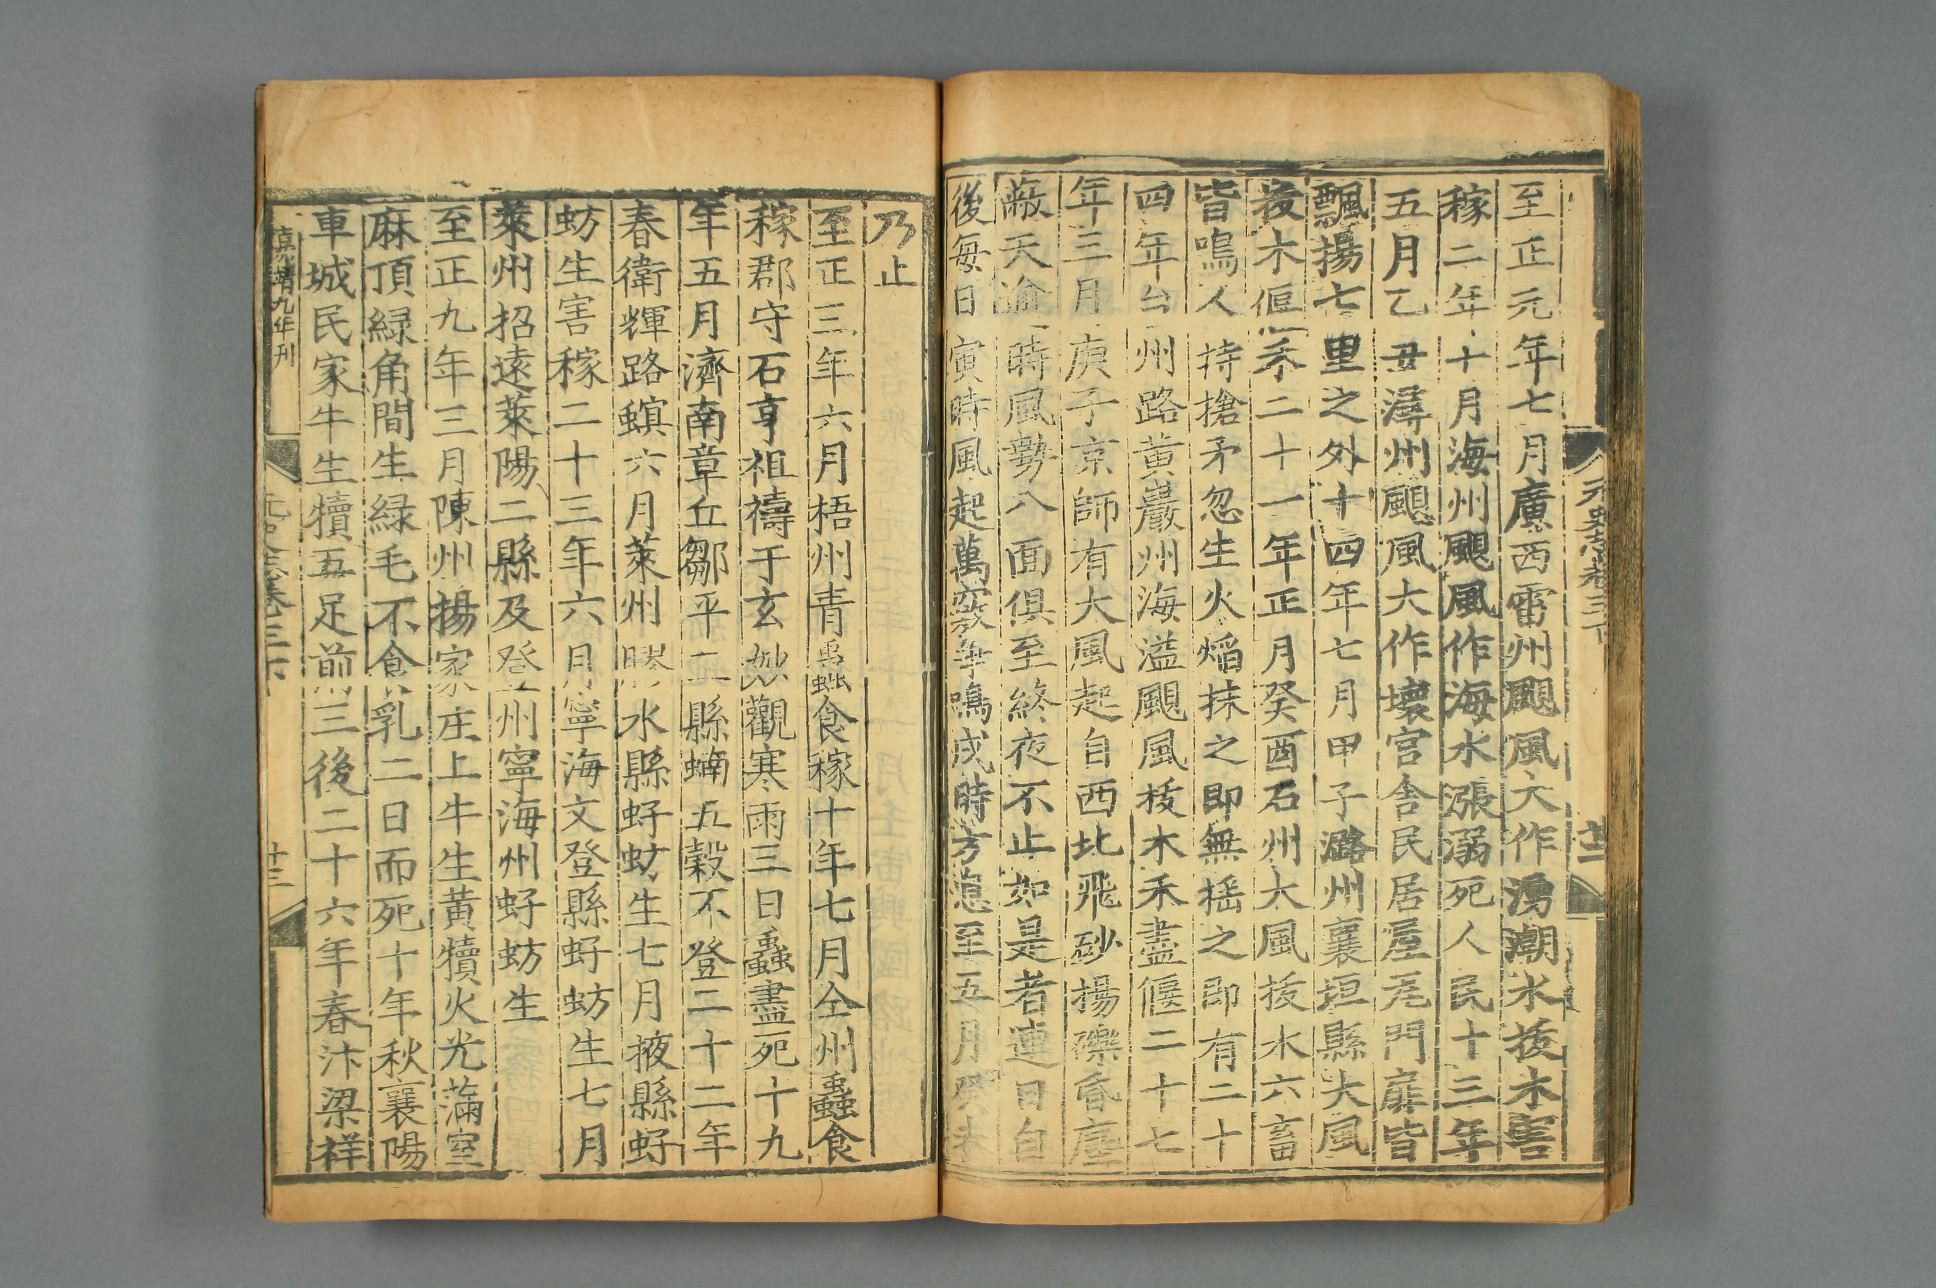 至正元年七月廣西雷州颶風大作湧潮水拔木害
稼二年十月海州颶風作海水漲溺死人民十三年
五月乙丑潯州颶風大作壞官舍民居屋瓦門扉皆
飄揚七里之外十四年七月甲子潞州襄垣縣大風
拔木偃禾二十一年正月癸酉石州大風拔木六畜
皆鳴人持搶矛忽生火焰抹之即無搖之即有二十
四年台州路黃巖州海溢颶風拔木禾盡偃二十七
年三月庚子京師有大風起自西北飛砂揚礫昏塵
蔽天逾時風勢八面俱至終夜不止如是者連日自
後每日寅時風起萬竅爭鳴戌時方息至五月癸未
乃止
至正三年六月梧州青蟲食稼十年七月仝州蟲食
稼郡守石亨祖禱于玄妙觀寒雨三日蟲盡死十九
年五月濟南章丘鄒平二縣蝻五穀不登二十二年
春衛輝路螟六月萊州膠水縣虸蚄生七月掖縣虸
蚄生害稼二十三年六月寧海文登縣虸蚄生七月
萊州招遠萊陽二縣及登州寧海州虸蚄生
至正九年三月陳州揚家庄上牛生黃犢火光滿室
麻頂綠角間生綠毛不食乳二日而死十年秋襄陽
車城民家牛生犢五足前三後二十六年春汴梁祥
嘉靖九年刊
十三